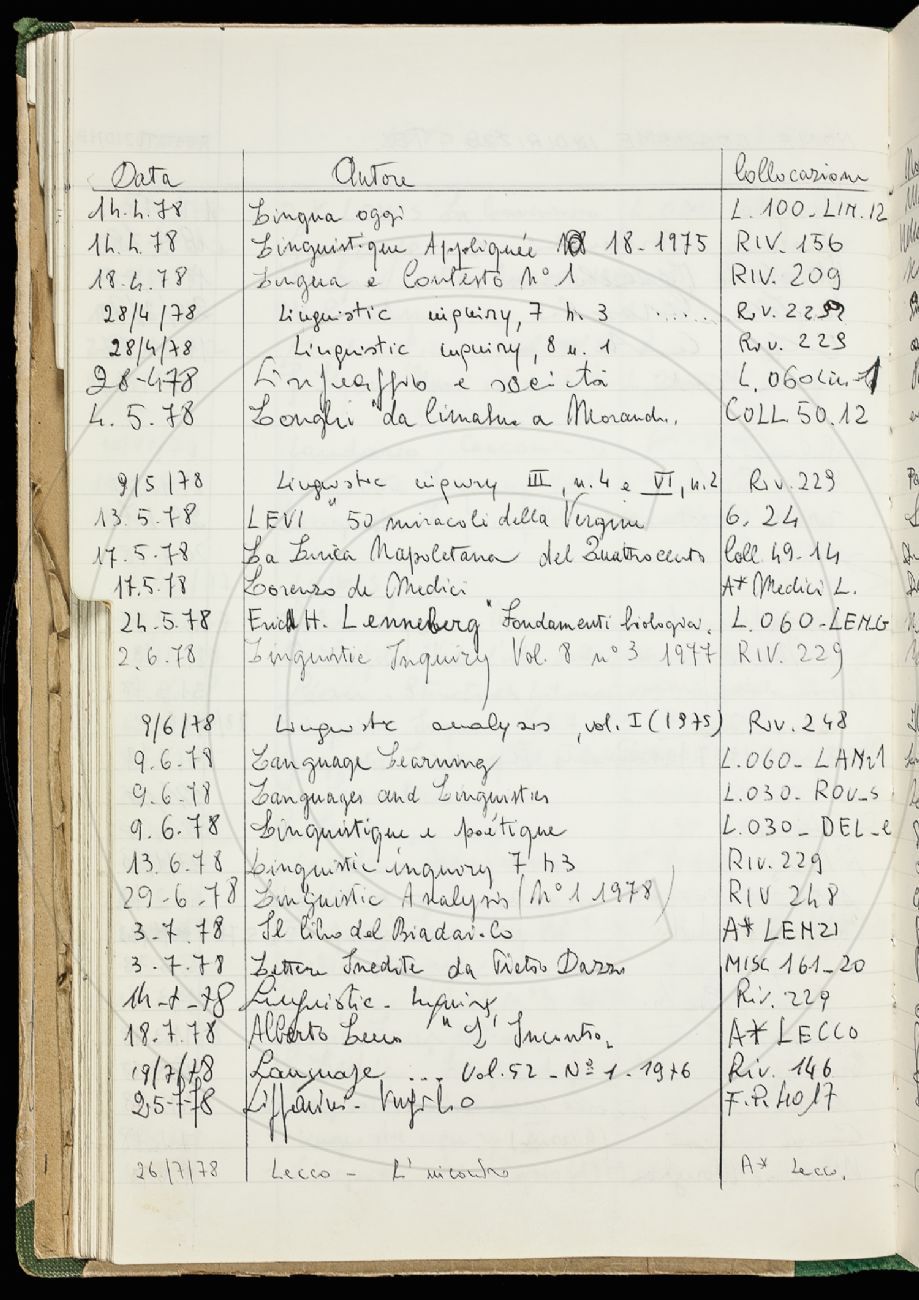 Data Autore Collocazione
14.4.78 Lingua oggi L. 100-LIN.12
14.4.78 Linguistique Appliquée 18-1975 RIV. 156
18.4.78 Lingua e Contesto N° 1 RIV. 209
28/4/78 Linguistic inquiry, 7 n. 3 ..... Riv. 229
28/4/78 Linguistic inquiry, 8 n. 1 Riv. 229
28-478 Linguaggio e società L. 060
4. 5. 78 Longhi "da Cimabue a Morandi. COLL. 50. 12
9/5/78 Linguistic inquiry III, n. 4 e VI, n. 2 Riv. 229
13. 5. 78 LEVI " 50 miracoli della Vergine 6. 24
17. 5. 78 La Lirica Napoletana del Quattrocento Coll. 49-14
17.5.78 Lorenzo de Medici A* Medici L.
24. 5.78 Erich H. Lenneberg "Fondamenti biologia. L. 060-LENG
2. 6. 78 Linguistic Inquiry Vol. 8 n° 3 1977 RIV. 229
9/6/78 Linguistic analysis, vol. I (1975) Riv. 248
9.6.78 Language Learning L.060-
9.6.78 Languages and Linguistics L.030- ROU-S
9.6.78 Linguistique e poétique L.030- DEL-e
13.6.78 Linguistic inquiry 7 n 3 Riv. 229
29-6-78 Linguistic Analysis (N° 1 1978) RIV 248
3-7.78 Il libro del Biadaiolo A* LENZI
3-7.78 Lettere Inedite da Pietro MISC 161-20
14-7-78 Linguistic - Inquiry Riv. 229
18.7.78 Alberto Lecco " L' Incontro. A* LECCO
19/7/78 Language ... Vol. 52 - N° 1 - 1976 Riv. 146
25-7-78 F.P. 40/17
26/7/78 Lecco - L'incontro A* Lecco.